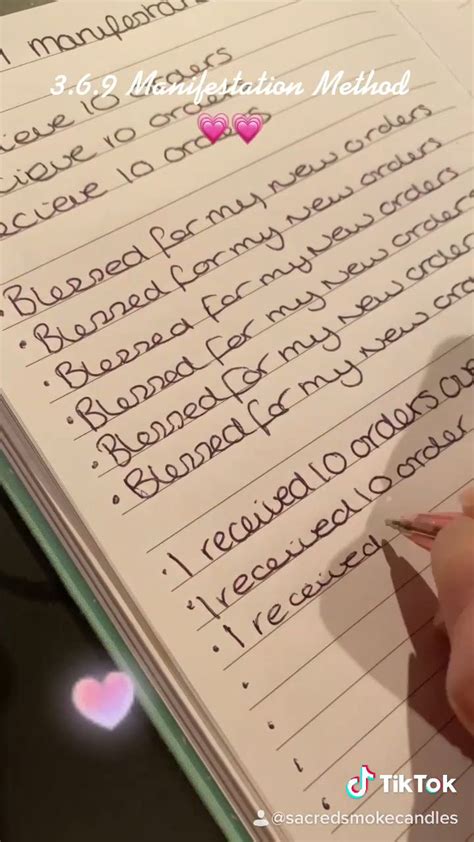 manifesta
3.6.9 Manifestation Method
ieve 10 orders
cieve 10 orders
ecieve 10 orders
• Blessed for my new orders
• Blessed for my new orders
• Blessed for my new orders
• Blessed for my new orders
• Blessed for my new order
• Blessed for my new ord
• I received 10 orders
• I received 10 order
• I received
TikTok
@sacredsmokecandles